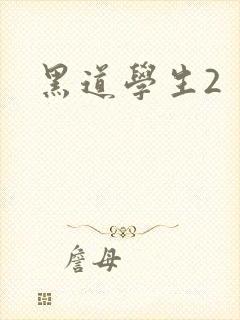 黑道學生2
詹母